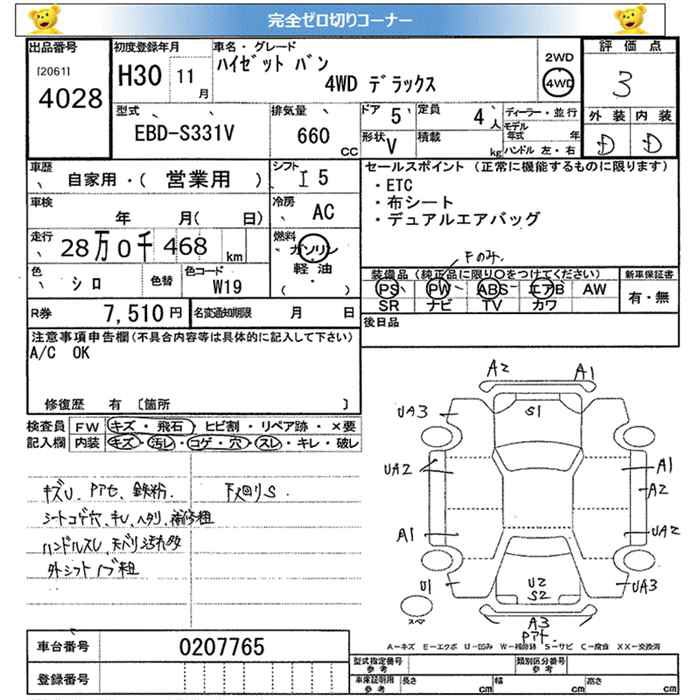 完全ゼロ切りコーナー
出品番号
[2061]
4028
初度登録年月
H30 11月
車名・グレード
ハイゼット バン
4WD デラックス
2WD
4WD
評価点
3
外装 内装
D D
型式
EBD-S331V
排気量
660
CC
ドア
5
定員
4人
形状
V
積載
kg
ディーラー・並行
モデル年式 年
ハンドル 左・右
車歴
自家用・( 営業用 )
シフト
I 5
車検
年 月( 日)
冷房
AC
走行
28万0千468 km
燃料
ガソリン
軽油
( ・ )
色
シロ
色替
色コード
W19
R券 7,510円
名変通知期限 月 日
セールスポイント (正常に機能するものに限ります)
・ETC
・布シート
・デュアルエアバッグ
Fのみ
装備品 (純正品に限り○をつけてください)
新車保証書
PS PW ABS エアB AW
SR ナビ TV カワ
有・無
後日品
注意事項申告欄(不具合内容等は具体的に記入して下さい)
A/C OK
修復歴 有 〔箇所 〕
検査員記入欄
FW キズ・飛石・ヒビ割・リペア跡・×要
内装 キズ・汚レ・コゲ・穴・スレ・キレ・破レ
キズU、Pアセ、鉄粉、
F廻りS
シートコゲ穴、キレ、ヘタリ、補修粗
ハンドルスレ、天バリ汚れ多
外シフトノブ粗
A2 A1
S1
UA3
UA2
A1
A2
A1
UA2
U1
U2
S2
UA3
スペア
A3
Pアト
A－キズ E－エクボ U－凹み W－補修跡 S－サビ C－腐食 XX－交換済
車台番号 0207765
登録番号
型式指定番号
参考
類別区分番号
参考
車庫証明用
参考
長さ cm
幅 cm
高さ cm